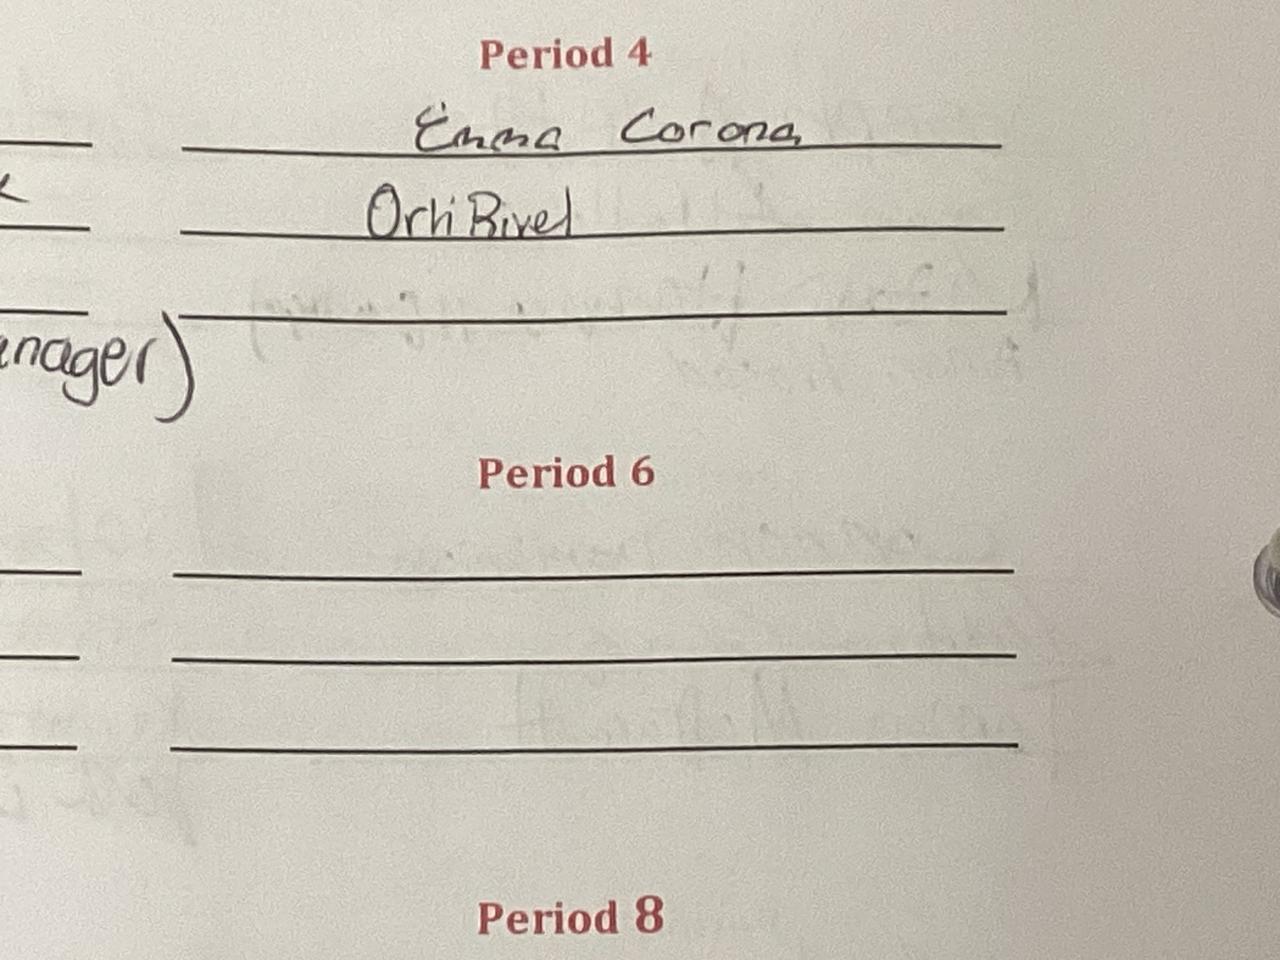 Period 4
Emma Corona
Orli Rivel
anager)
Period 6
Period 8